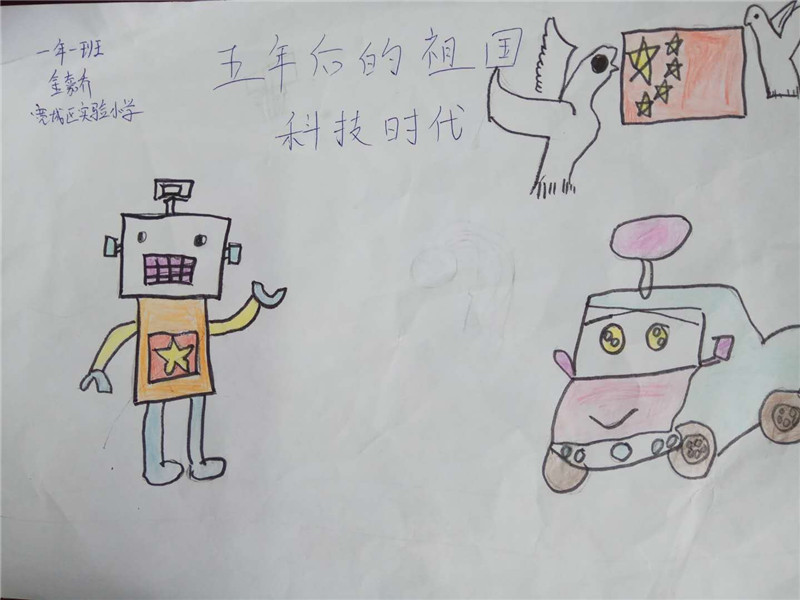 一年一班
五年后的祖国
科技时代
宽城区实验小学